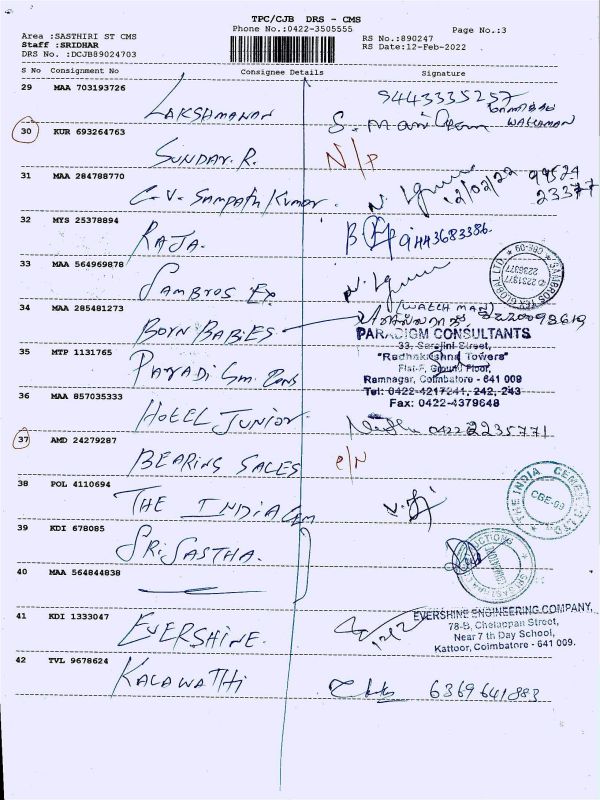 TPC/CJB DRS - CMS
Phone No.:0422-3505555
Page No.:3
Area :SASTHIRI ST CMS
Staff :SRIDHAR
DRS No. :DCJB89024703
RS No.:890247
RS Date:12-Feb-2022
S No Consignment No Consignee Details Signature
29 MAA 703193726 LAKSHMANAN 9443335257
WATCHMAN
30 KUR 693264763 SUNDAR. R. N/P
31 MAA 284788770 C.V. Sampath Kumar. 12/02/22 99524
23377
32 MYS 25378894 RAJA. 9443683386.
33 MAA 564969878 SAMBROS Ex.
SAMBROS TEX GLOBAL LTD
CBE-09
2231977
2236377
34 MAA 285481273 BORN BABIES (WATCH MAN)
PARADIGM CONSULTANTS
33, Sarojini Street,
35 MTP 1131765 "Radhakrishna Towers"
Flat-F, Ground Floor,
Ramnagar, Coimbatore - 641 009
Tel: 0422-4217241, 242, 243
Fax: 0422-4379648
36 MAA 857035333 HOTEL JUNIOR. 0422 2235771
37 AMD 24279287 BEARING SALES
38 POL 4110694 THE INDIA Cem
THE INDIA CEMENTS LTD
CBE-09
39 KDI 678085 SRI SASTHA.
40 MAA 564844838
41 KDI 1333047 EVERSHINE.
EVERSHINE ENGINEERING COMPANY,
78-B, Chelappan Street,
Near 7 th Day School,
Kattoor, Coimbatore - 641 009.
42 TVL 9678624 KALAWATHI 6369641883